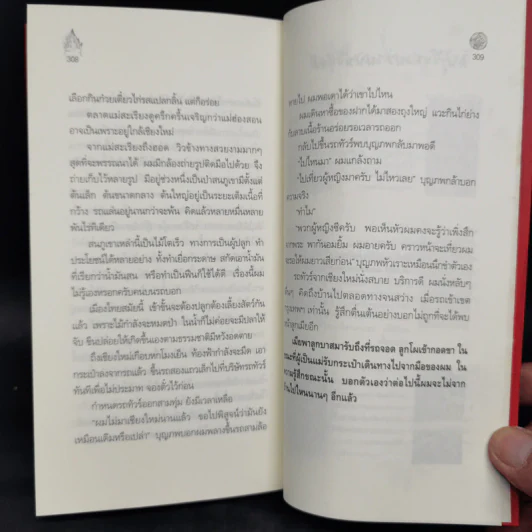 308
เลือกกินก๋วยเตี๋ยวไก่รสแปลกลิ้น แต่ก็อร่อย
ตลาดแม่สะเรียงดูครึกครื้นเจริญกว่าแม่ฮ่องสอน
อาจเป็นเพราะอยู่ใกล้เชียงใหม่
จากแม่สะเรียงถึงฮอด วิวข้างทางสวยงามมากๆ
สุดที่จะพรรณนาได้ ผมมีกล้องถ่ายรูปติดมือไปด้วย จึง
ถ่ายเก็บไว้หลายรูป มีอยู่ช่วงหนึ่งเป็นป่าสนภูเขามีตั้งแต่
ต้นเล็ก ต้นขนาดกลาง ต้นใหญ่อยู่เป็นระยะเต็มเนื้อที่
กว้าง รถแล่นอยู่นานกว่าจะพ้น คิดแล้วหลายหมื่นหลาย
พันไร่ทีเดียว
สนภูเขาเหล่านี้เป็นไม้โตเร็ว ทางการเป็นผู้ปลูก ทำ
ประโยชน์ได้หลายอย่าง ทั้งทำเยื่อกระดาษ สกัดเอาน้ำมัน
ที่เรียกว่าน้ำมันสน หรือทำเป็นฟืนก็ใช้ได้ดี เรื่องนี้ผม
ไม่รู้เองหรอกครับคนบนรถบอก
เมืองไทยสมัยนี้ เช้าขึ้นจะต้องปลูกต้องเลี้ยงสัตว์กัน
แล้ว เพราะไม้กำลังจะหมดป่า ในน้ำก็ไม่ค่อยจะมีปลาให้
จับ ขืนปล่อยให้เกิดขึ้นเองตามธรรมชาติมีหวังอดตาย
ถึงเชียงใหม่เกือบหกโมงเย็น ท้องฟ้ากำลังจะมืด เอา
กระเป๋าลงจากรถแล้ว ขึ้นรถสองแถวเล็กไปที่บริษัททัวร์
ทันทีเพื่อไม่ประมาท จองตั๋วไว้ก่อน
กำหนดรถทัวร์ออกสามทุ่ม ยังมีเวลาเหลือ
"ผมไม่มาเชียงใหม่นานแล้ว ขอไปพิสูจน์ว่ามันยัง
เหมือนเดิมหรือเปล่า" บุญภพบอกผมพลางขึ้นรถสามล้อ
309
หายไป ผมพอเดาได้ว่าเขาไปไหน
ผมเดินหาซื้อของฝากได้มาสองถุงใหญ่ แวะกินไก่ย่าง
กลับไปขึ้นรถทัวร์พบบุญภพกลับมาพอดี
"ไปไหนมา" ผมแกล้งถาม
"ไปเที่ยวผู้หญิงมาครับ ไม่ไหวเลย" บุญภพกล้าบอก
ความจริง
"ทำไม"
"พวกผู้หญิงซีครับ พอเห็นหัวผมคงจะรู้ว่าเพิ่งสึก
พระ พากันอมยิ้ม ผมอายครับ คราวหน้าจะเที่ยวผม
รอให้ผมยาวเสียก่อน" บุญภพหัวเราะเหมือนนึกขำตัวเอง
รถทัวร์จากเชียงใหม่นั่งสบาย บริการดี ผมนั่งหลับๆ
ตื่นๆ คิดถึงบ้านไปตลอดทางจนสว่าง เมื่อรถเข้าเขต
กรุงเทพฯ เท่านั้น รู้สึกตื่นเต้นอย่างบอกไม่ถูกที่จะได้พบ
ลูกเมียอีก
เมียพาลูกมารับถึงที่รถจอด ลูกโผเข้ากอดขา ใน
ขณะที่ผู้เป็นแม่รับกระเป๋าเดินทางไปจากมือของผม ใน
ความรู้สึกขณะนั้น บอกตัวเองว่าต่อไปนี้ผมจะไม่จาก
บ้านไปไหนนานๆ อีกแล้ว